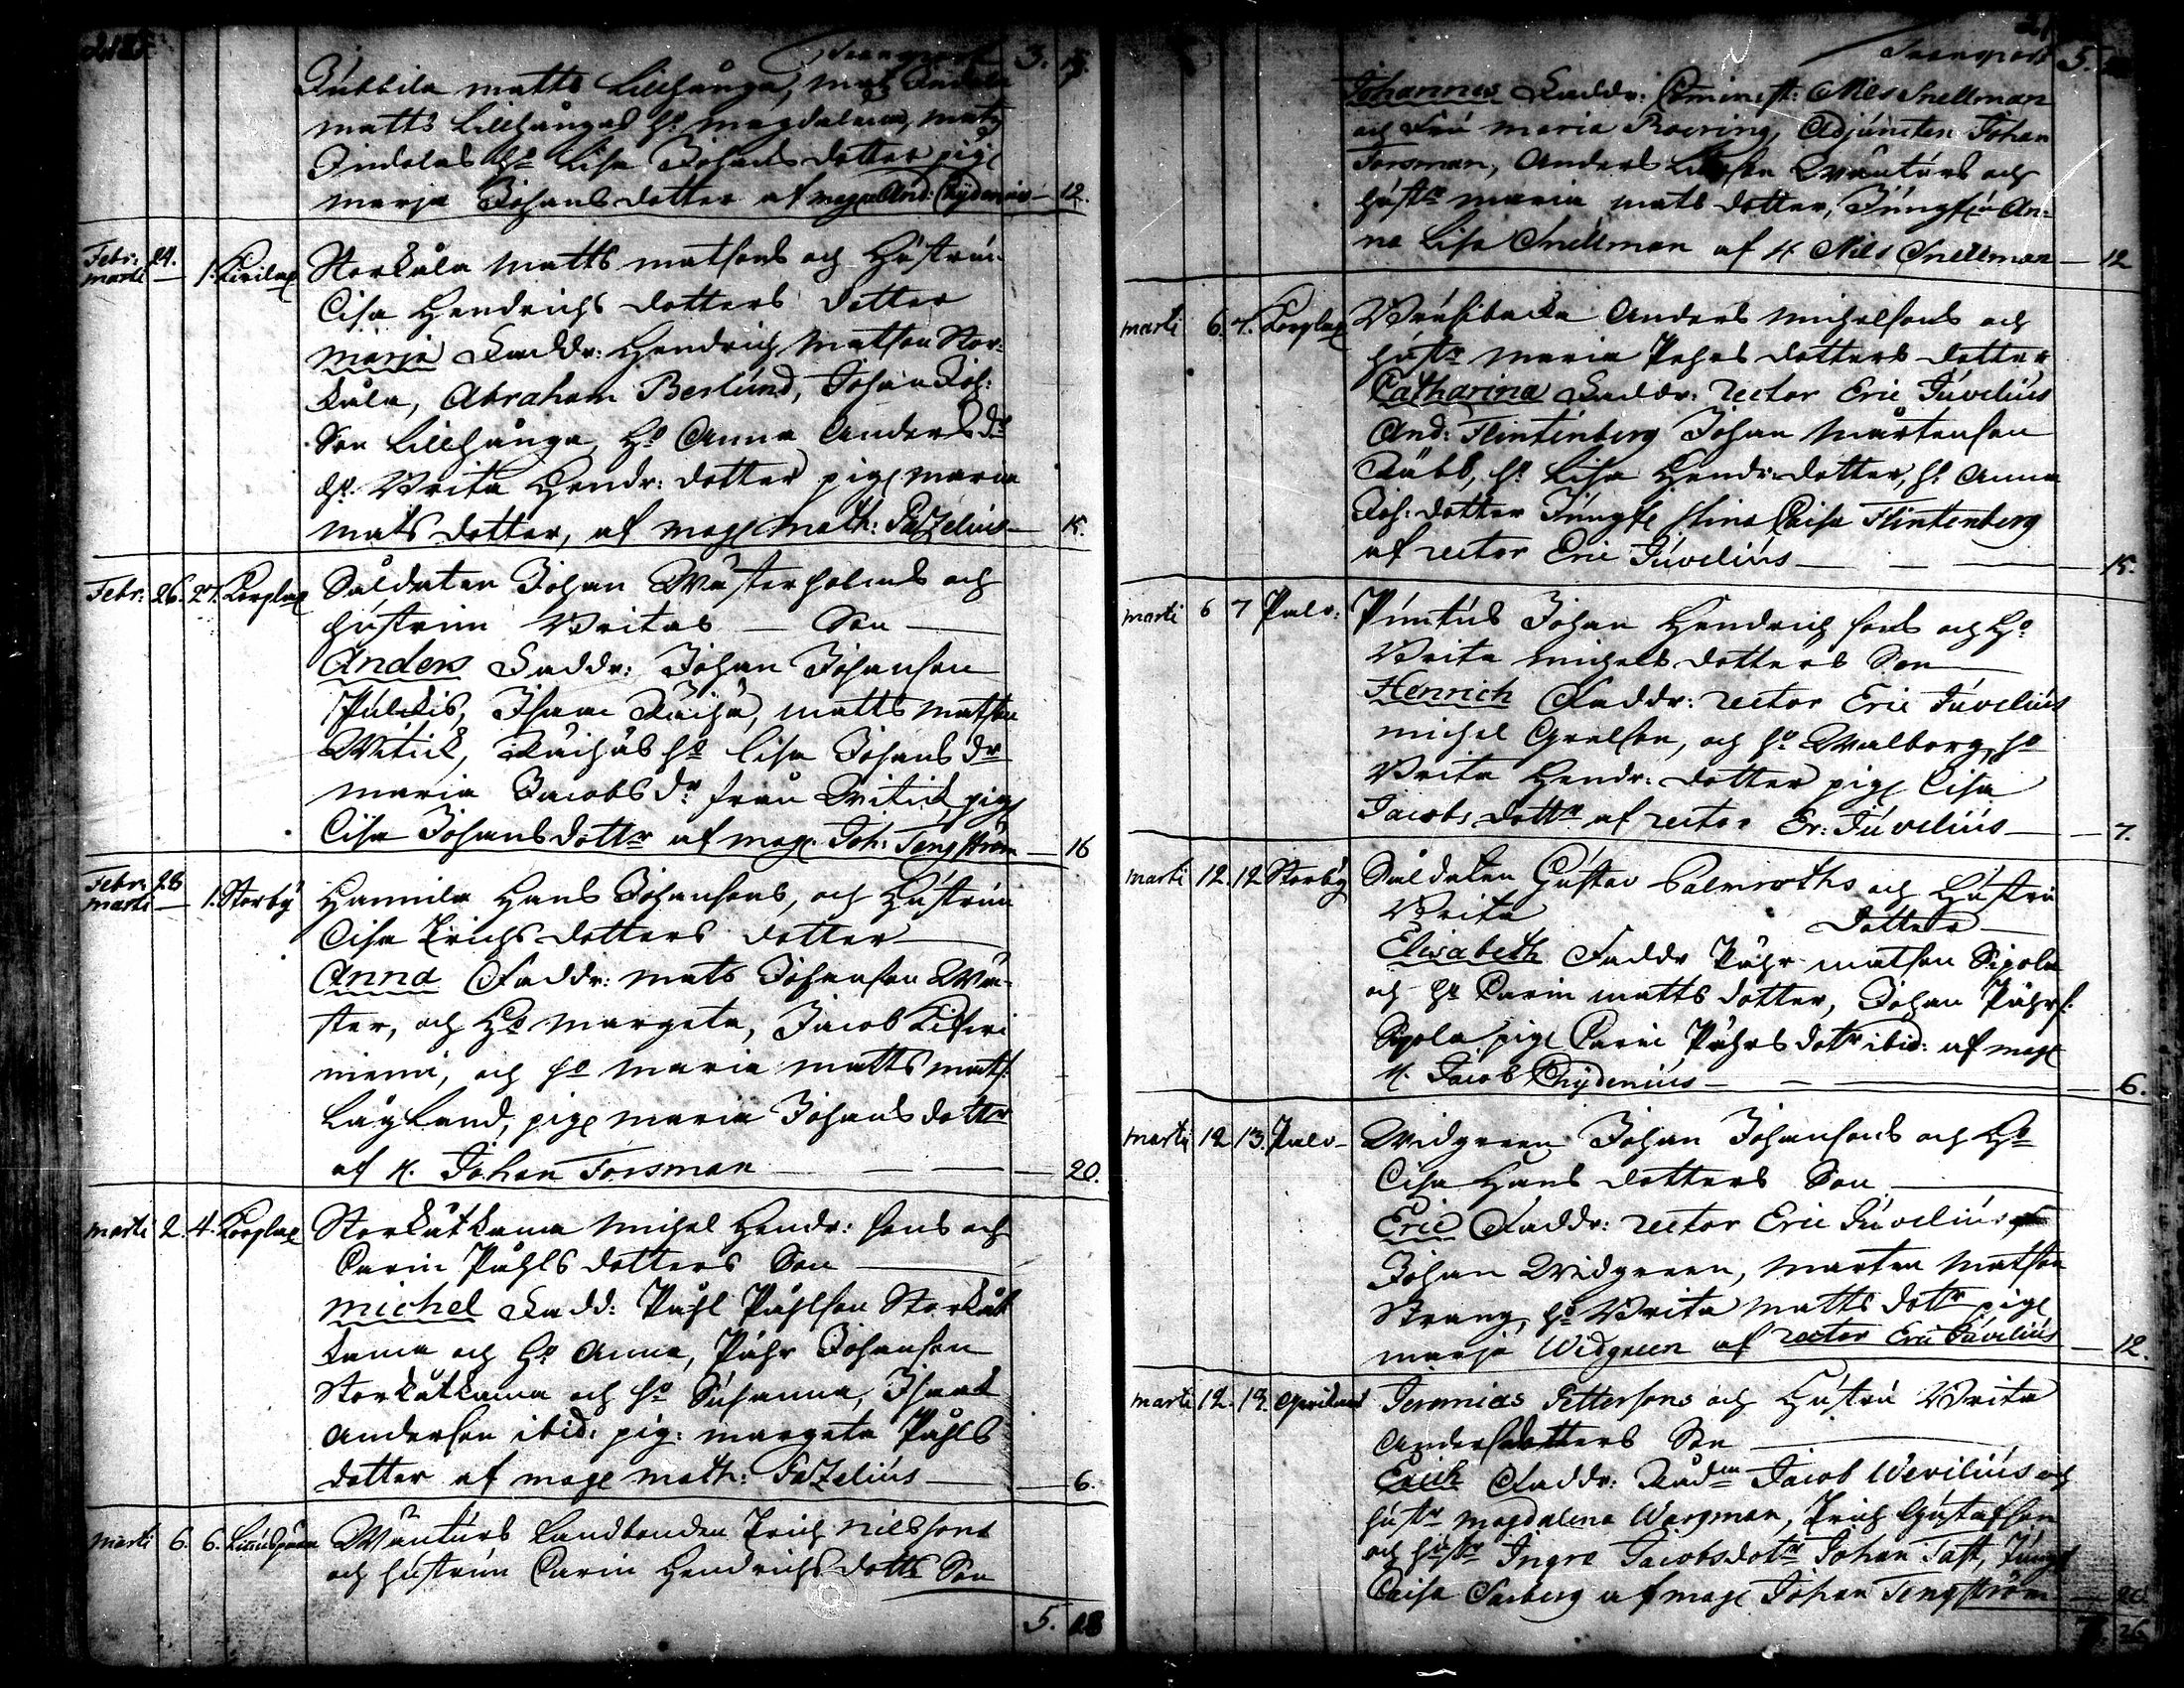 Transport 3. 15.
Jubbila matts Lillhånga, mats Indola
matts Lillhångas h:o magdalena, mats
Indolas h:o Lisa Johans dotter pig:
marja Johans dotter af mag: And: Chydenius — 12.
Febr: 24.
marti — 1. Kirilax Storkåla Matts matsons och Hustrun
Lisa Hendrichs dotters dotter
Marja Faddr: Hendrich Matson Stor-
kåla, Abraham Berlund, Johan Joh:
Son Lillhånga, h:o Anna Anders d:r
h:o Brita Hendr: dotter pig: maria
mats dotter, af mag: Math: Fazelius — 15.
Febr: 26. 27. Korplax Såldaten Johan Wästerholms och
hustrun Britas — Son —
Anders Faddr: Johan Johanson
Pulkis, Isaac Kaiha, matts matson
Witick, Kaihas h:o Lisa Johans d:r
maria Jacobs d:r från Witick, pig:
Lisa Johans dott:r af mag: Joh: Tengström — 16
Febr: 28
marti — 1. Storby Hannila Hans Johansons, och Hustrun
Lisa Erichs dotters dotter —
Anna Faddr: mats Johanson Wä-
ster, och H:o Margeta, Jacob
niemi, och h:o maria matts mats:
Lågland, pig: maria Johans dott:r
af H. Johan Forsman — 20.
marti 2. 4. Korplax Storkåtkama Michel Hendr: sons och
Carin Påhls dotters Son —
Michel Fadd: Påhl Påhlson Storkåt
kama och h:o Anna, Påhr Johanson
Storkåtkama och h:o Susanna, Isaac
Anderson ibid: pig: margeta Påhls
dotter af mag: math: Fazelius — 6.
marti 6. 6. Wäntürs Landbonden Erich Nilssons
och hustrun Carin Hendrichs dott:s Son
5. 28
Transport 5.
Johannes Faddr: Cominist: Nils Snellman
och Fru Maria Roering, Adjuncten Johan
Forsman, Anders Wäntürs och
hust:r maria mats dotter, Jungfr: An-
na Lisa Snellman af H. Nils Snellman — 12
marti 6. 7. Korplax Anders Michelsons och
hust:r maria Pehrs dotters dotter
Catharina Faddr: rector Eric Juvelius
And: Flintenberg Johan Mårtenson
Räbb, h:o Lisa Hendr: dotter, h:o Anna
Joh: dotter Jungfr: Stina Caisa Flintenberg
af rector Eric Juvelius — 15.
marti 6 7 Palo: Puntus Johan Hendrichsons och H:o
Brita Michels dotters Son
Henrich Faddr: rector Eric Juvelius
michel Grelson, och h:o Walborg, h:o
Brita Hendr: dotter pig: Lisa
Jacobs dott:r af rector Er: Juvelius — 7.
marti 12. 12 Storby Såldaten Gustav Palmroths och Hustru
Brita dotter —
Elisabeth Faddr Påhr matson Sipola
och h:o Carin matts dotter, Johan Påhrs:
Sipola pig: Carin Påhrs dott:r ibid: af mag:
H. Jacob Chydenius — 6.
marti 12 13. Palo — Widgreen Johan Johansons och H:o
Lisa Hans dotters Son —
Eric Faddr: rector Eric Juvelius
Johan Widgreen, Marten Matson
Strang, h:o Brita Matts dott:r pig:
marja Widgreen af rector Eric Juvelius — 12.
marti 12. 13. Jeremias Pettersons och Hustru Brita
Andersdotters Son —
Erich Faddr: Rådm Jacob Wevilius och
hust:r Magdalena Wargman, Erich Gustafson
och hust:r Ingre Jacobsdot:r Johan Fast, Jungf:
Caisa af mag: Johan Tengström — 20
7. 26